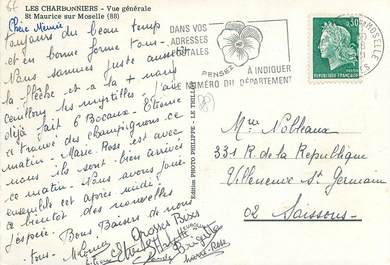 LES CHARBONNIERS - Vue générale
St Maurice sur Moselle (88)
Chère Mémée
Toujours du beau temp
et en bonne forme tous.
Nous sommes juste au dessus
la flèche et à la + nous
cueillons les myrtilles. J'ai
déjà fait 6 Bocaux. Etienne
a trouvé des champignons ce
matin. Marie-Rose est avec
nous ils sont bien arrivés
ce matin. Nous avons joué
ensemble cet après-midi.
a bientôt des nouvelles
j'espère. Bons Baisers de nous
tous.
Grosses Bises
Brigitte
Marie Rose
Edition PHOTO PHILIPPE - LE THILLOT
DANS VOS
ADRESSES
POSTALES
PENSEZ
A INDIQUER
LE NUMÉRO DU DÉPARTEMENT
MOSELLE
0,30
REPUBLIQUE FRANÇAISE
Mme Nolteaux
331 R. de la République
Villeneuve St Germain
02 Soissons